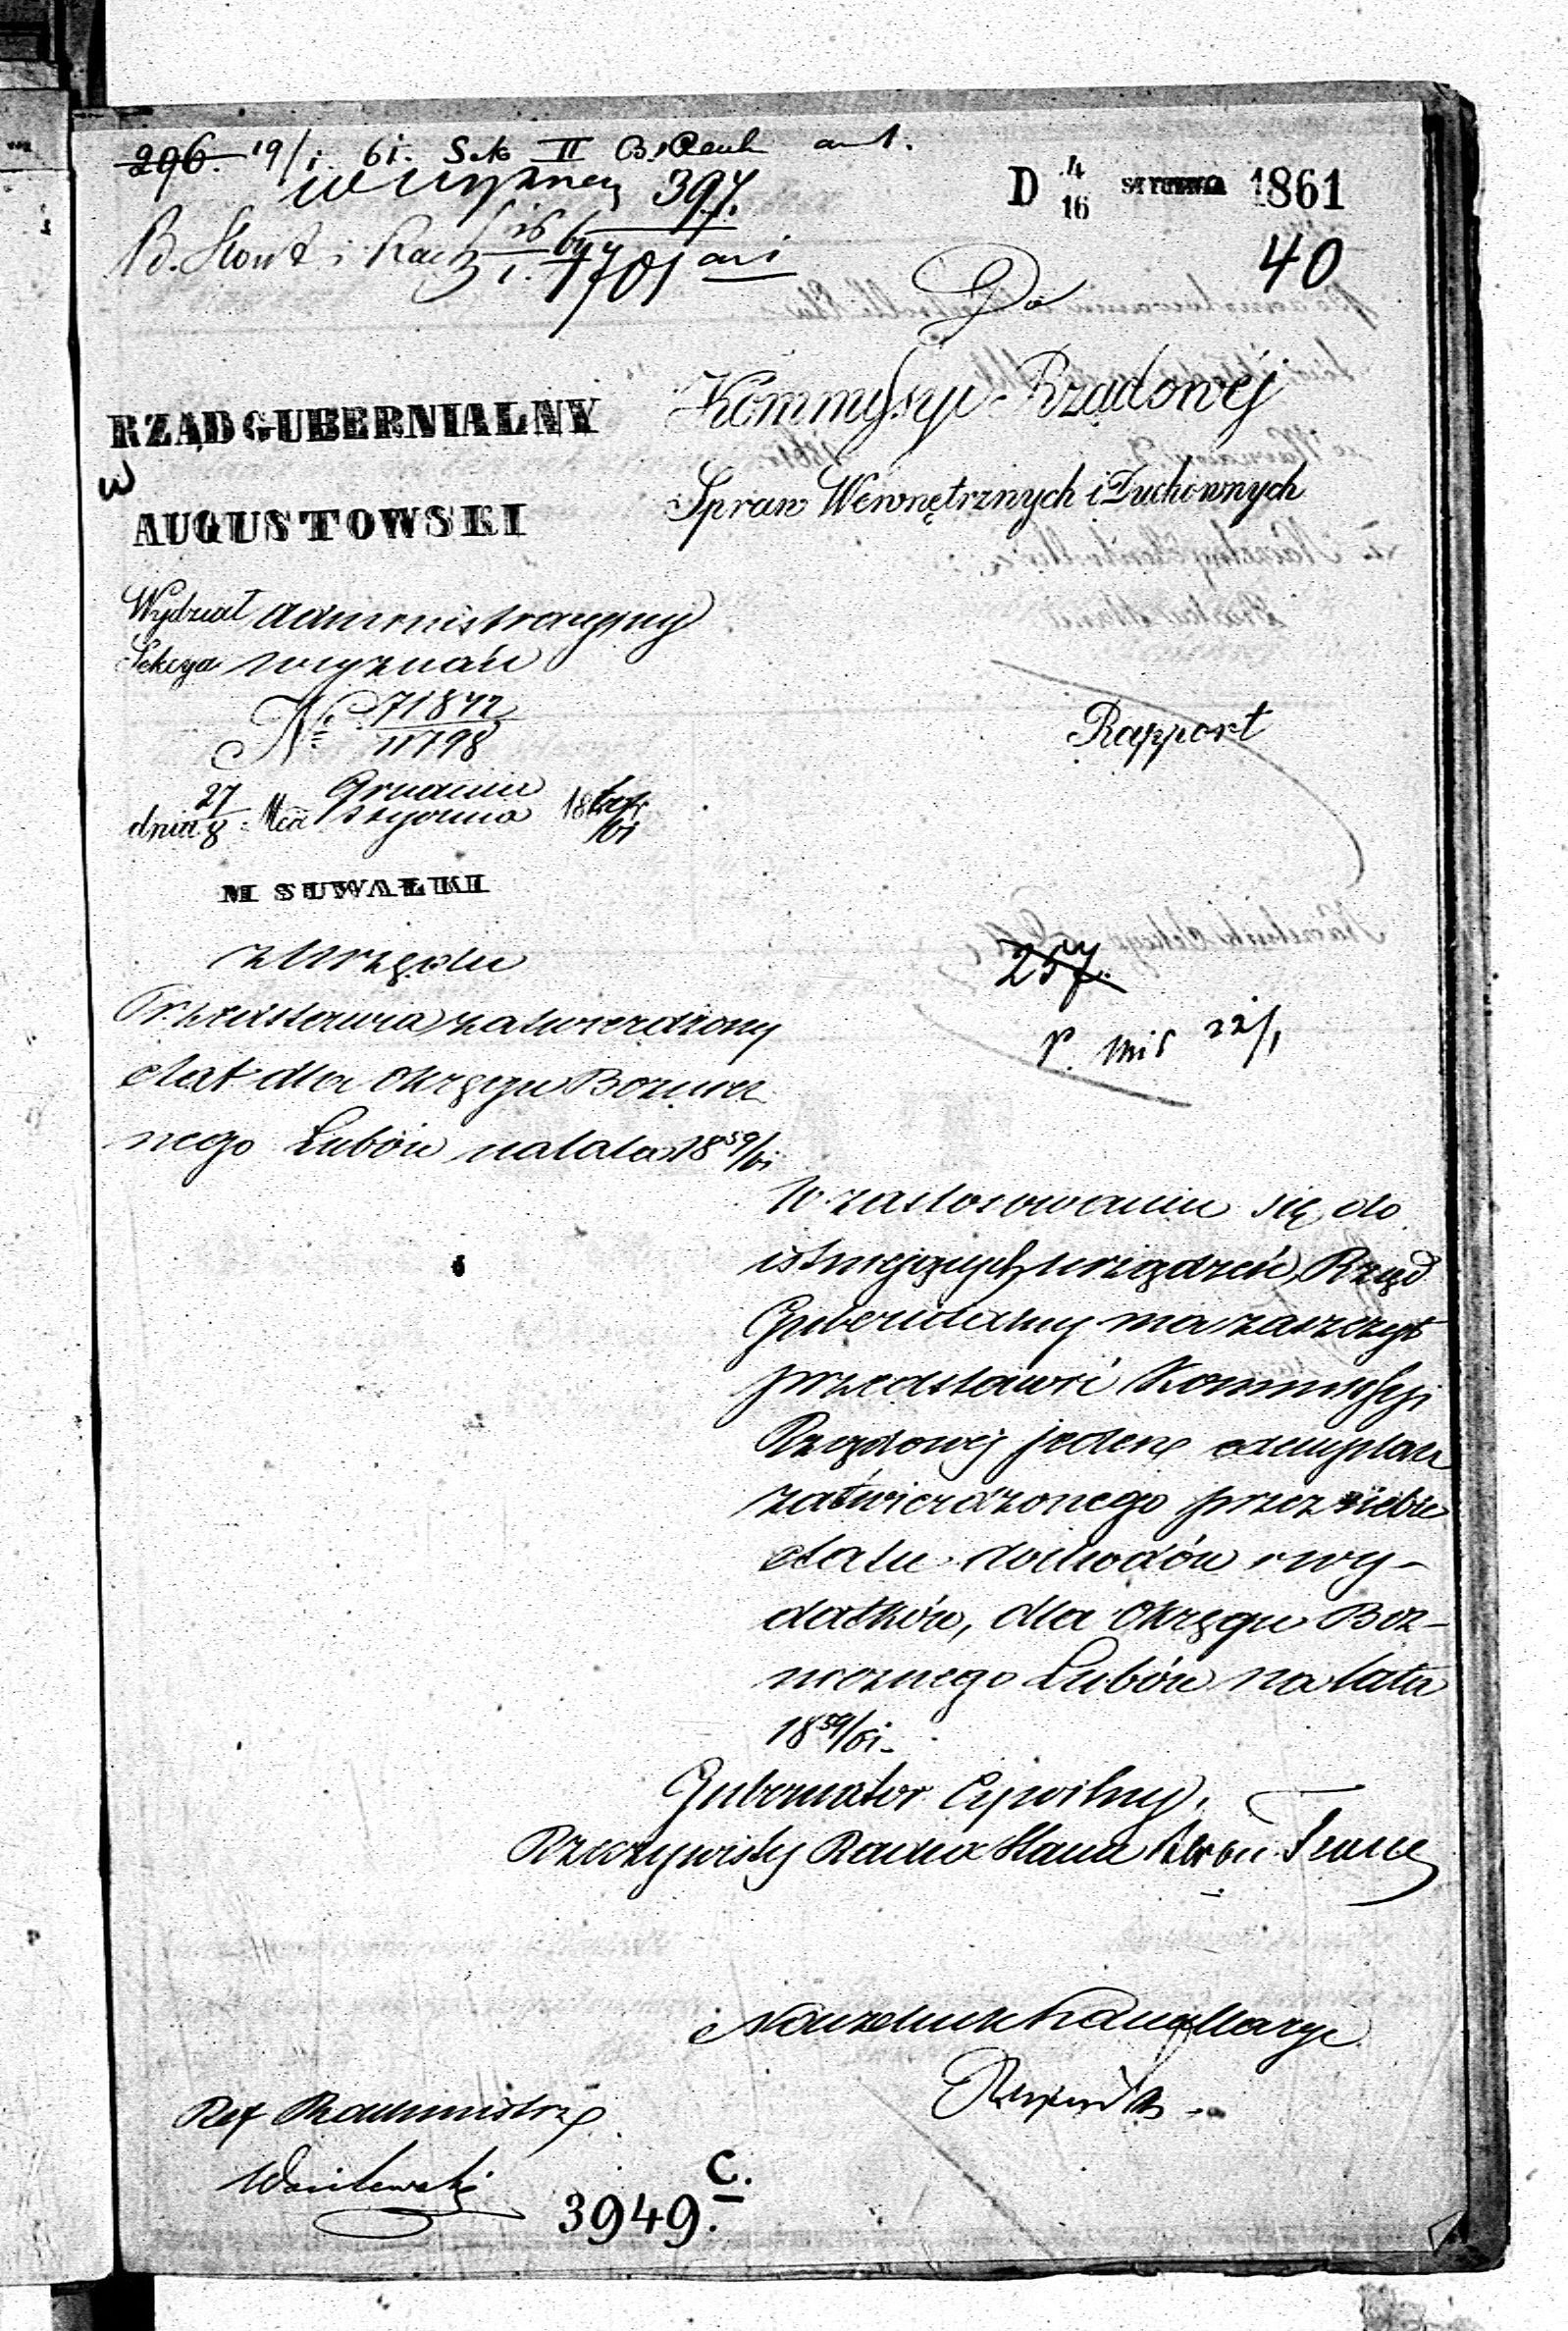 296. 19/1. 61. Sek II
w wyznań 397.
B. Kont i Rach 1701
D 4/16 STYCZNIA 1861
40
Do
Kommyssyi Rządowéj
Spraw Wewnętrznych i Duchownych
RZĄD GUBERNIALNY
w
AUGUSTOWSKI
Wydział administracyjny
Sekcya wyznań
No 71842/11798
dnia 27/8 Mca Grudnia/Stycznia 1860/61
M SUWAŁKI
Rapport
z Urzędu
Przedstawia zatwierdzony
etat dla Okręgu Bożnicz
nego Lubów na lata 1859/61
257.
22/1
W zastosowaniu się do
istniejących urządzeń, Rząd
Gubernialny ma zaszczyt
przedstawić Kommissyi
Rządowej jeden exemplarz
zatwierdzonego przez siebie
etatu dochodów i wy-
datków, dla Okręgu Boż-
nicznego Lubów na lata
1859/61.
Gubernator Cywilny,
Rzeczywisty Radca Stanu
Naczelnik Kancellaryi
Ref Rachmistrz
Wasilewski
3949.
C.